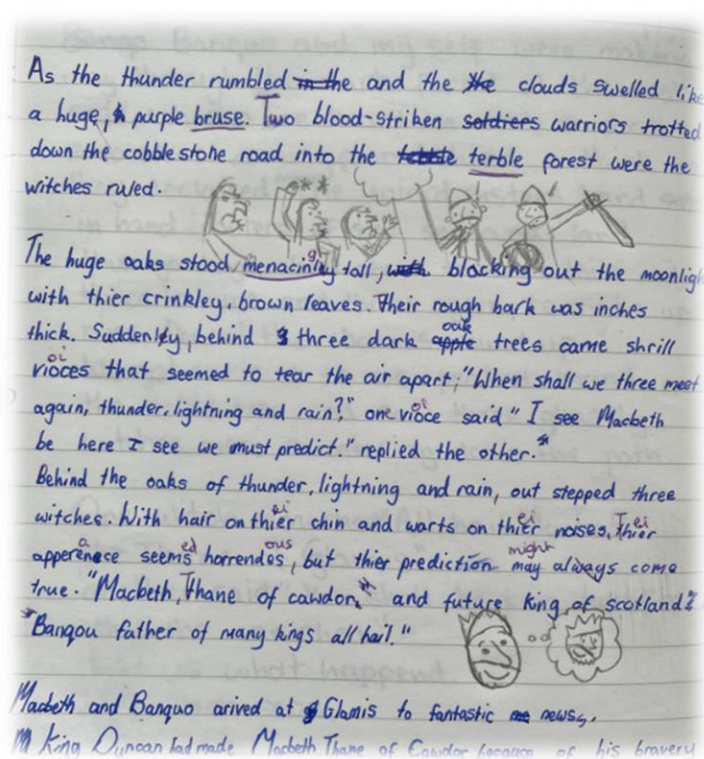 As the thunder rumbled in the and the the clouds swelled like
a huge, purple bruse. Two blood-striken soldiers warriors trotted
down the cobblestone road into the terble forest were the
witches ruled.
The huge oaks stood menacingly tall, with blocking out the moonligh
with thier crinkley, brown leaves. Their rough bark was inches
thick. Suddenley, behind 3 three dark apple oak trees came shrill
vioces oi that seemed to tear the air apart; "When shall we three meet
again, thunder, lightning and rain?" one vioce oi said "I see Macbeth
be here I see we must predict." replied the other.
Behind the oaks of thunder, lightning and rain, out stepped three
witches. With hair on thier ei chin and warts on thier ei noises. Thier ei
apperenece a seems ed horrendos ous, but thier prediction may might always come
true. "Macbeth, Thane of cawdor, and future King of scotland!
"Banqou father of many kings all hail."
Macbeth and Banquo arived at Glamis to fantastic news,.
King Duncan had made Macbeth Thane of Cawdor because of his bravery